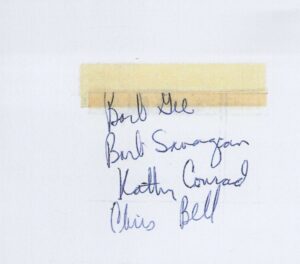 Barb Gee
Barb
Kathy Conrad
Chris Bell